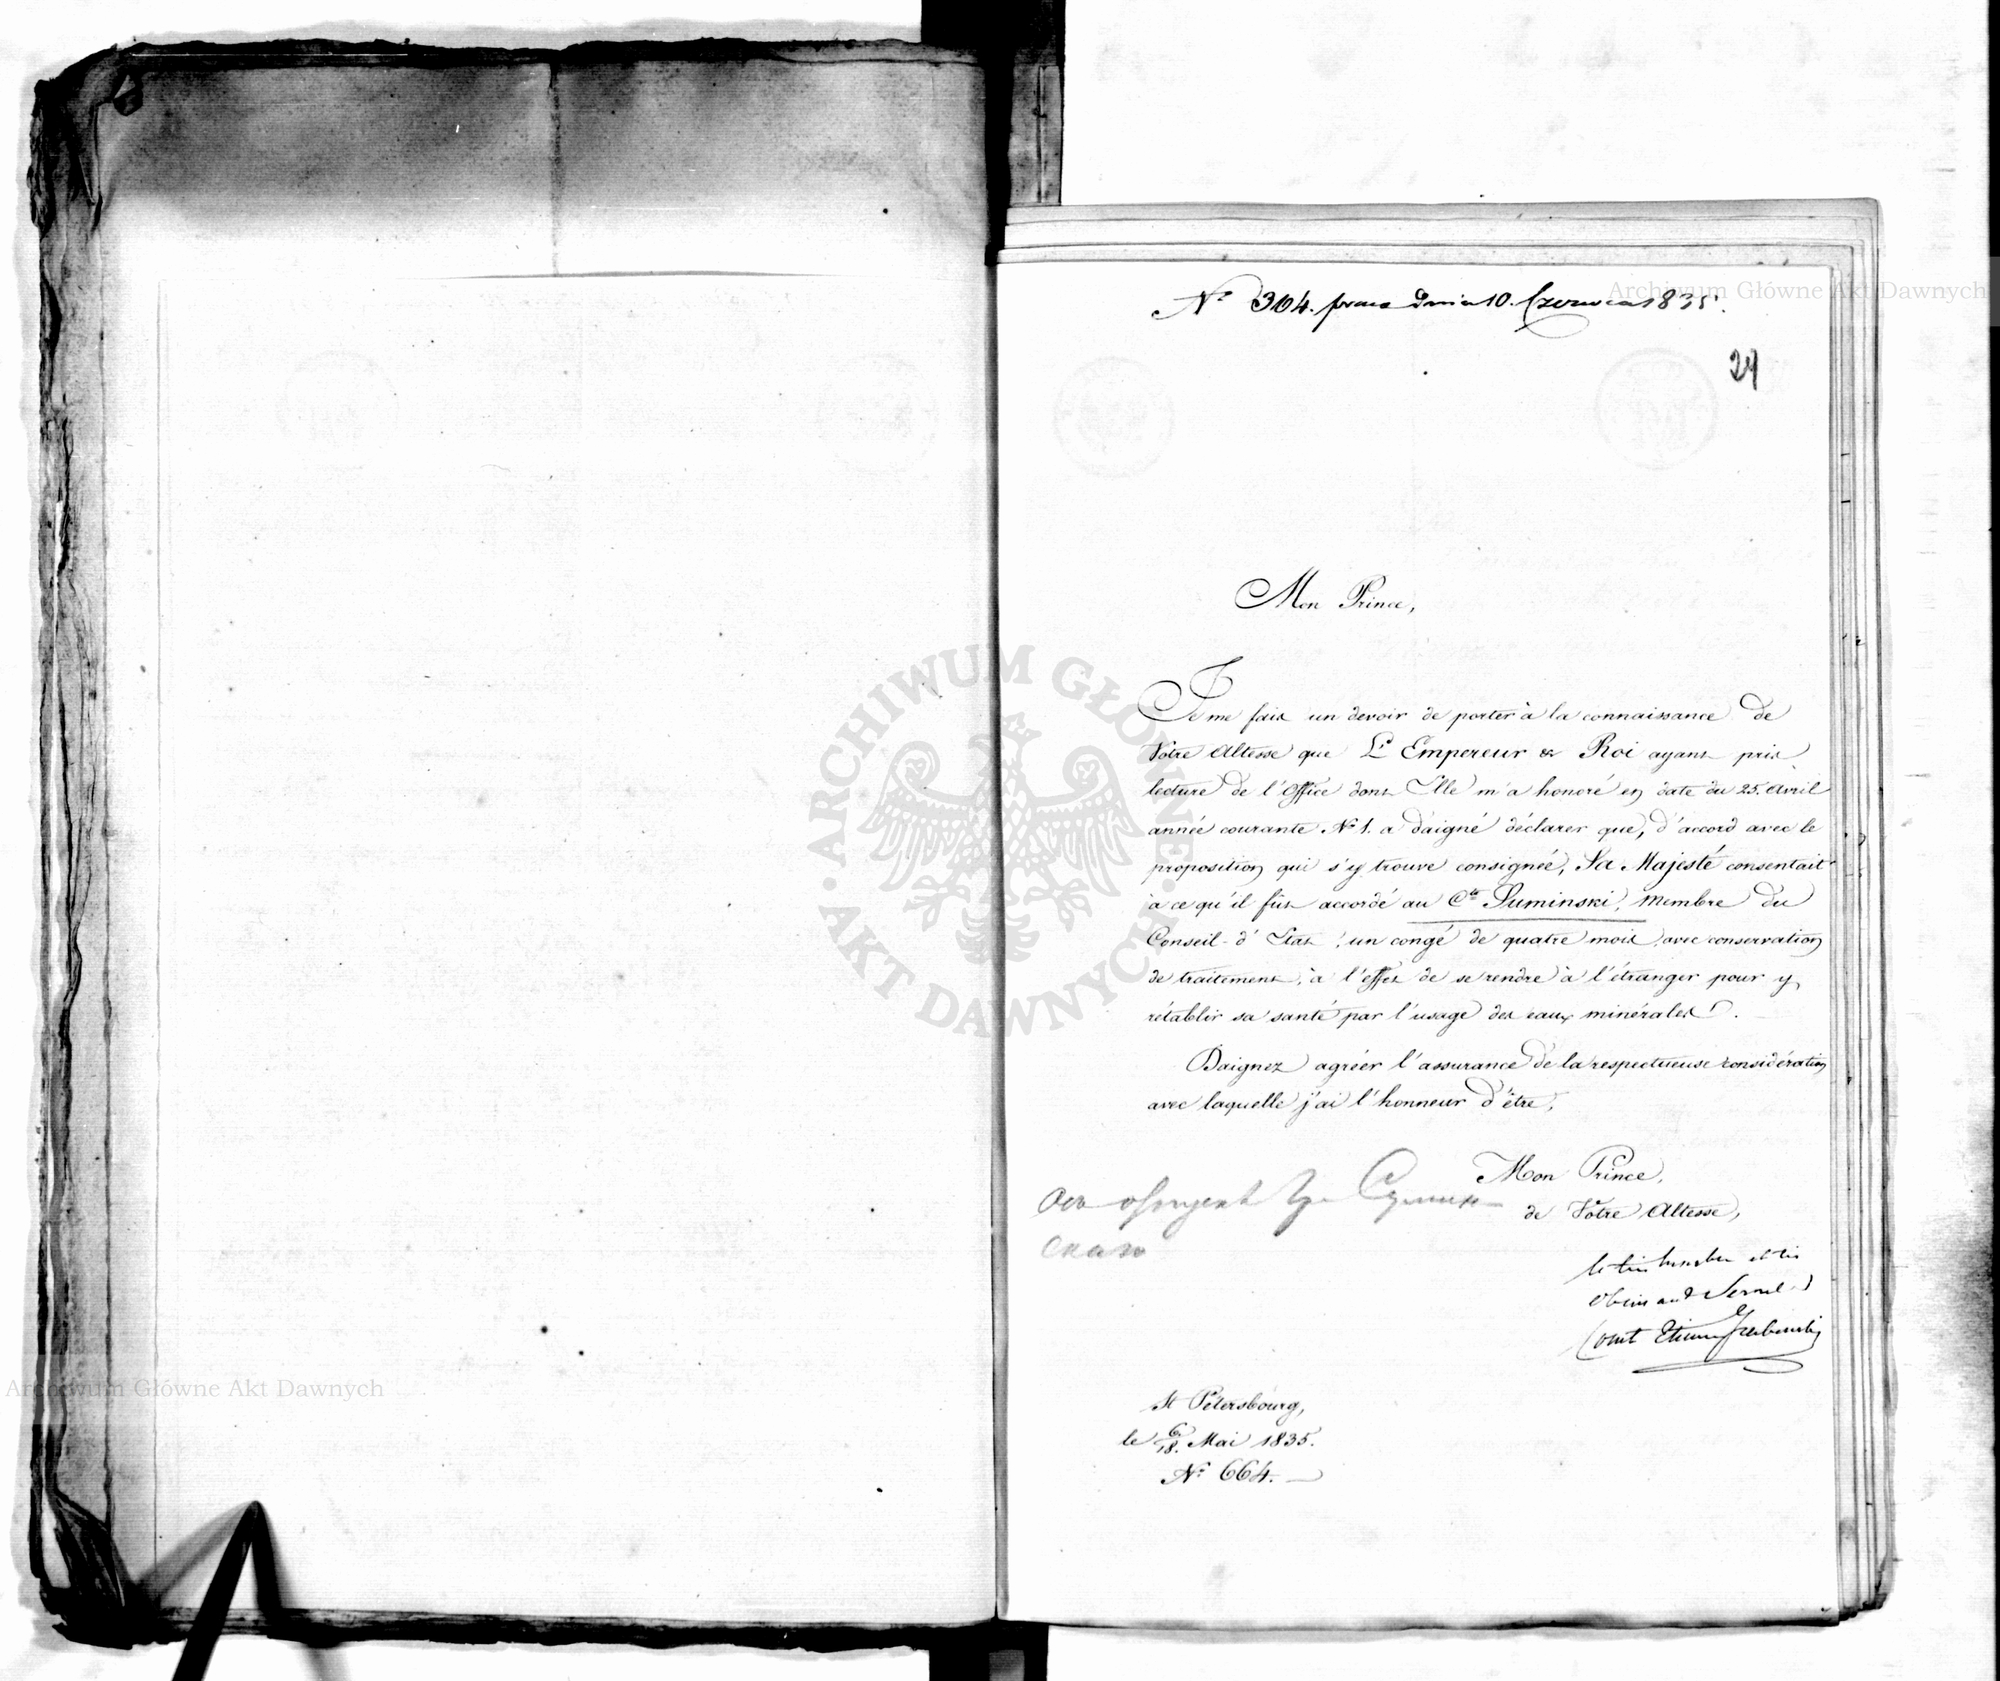 Nº 304. praes dnia 10. Czerwca 1835.
24
Mon Prince,
Je me fais un devoir de porter à la connaissance de
Votre Altesse que L'Empereur & Roi ayant pris
lecture de l'Office dont Elle m'a honoré en date du 25. Avril
année courante Nº 1. a daigné déclarer que, d'accord avec le
proposition qui s'y trouve consignée, Sa Majesté consentait
à ce qu'il fût accordé au Cte Suminski, membre du
Conseil-d'Etat, un congé de quatre mois, avec conservation
de traitement, à l'effet de se rendre à l'étranger pour y
rétablir sa santé par l'usage des eaux minérales.
Daignez agréer l'assurance de la respectueuse considération
avec laquelle j'ai l'honneur d'être,
Mon Prince,
de Votre Altesse,
le très humble et très
obéissant Servit.
Comt Etienne Grabowski
St Pétersbourg,
le 6/18. Mai 1835.
Nº 664.
ARCHIWUM GŁÓWNE AKT DAWNYCH
Archiwum Główne Akt Dawnych
Archiwum Główne Akt Dawnych